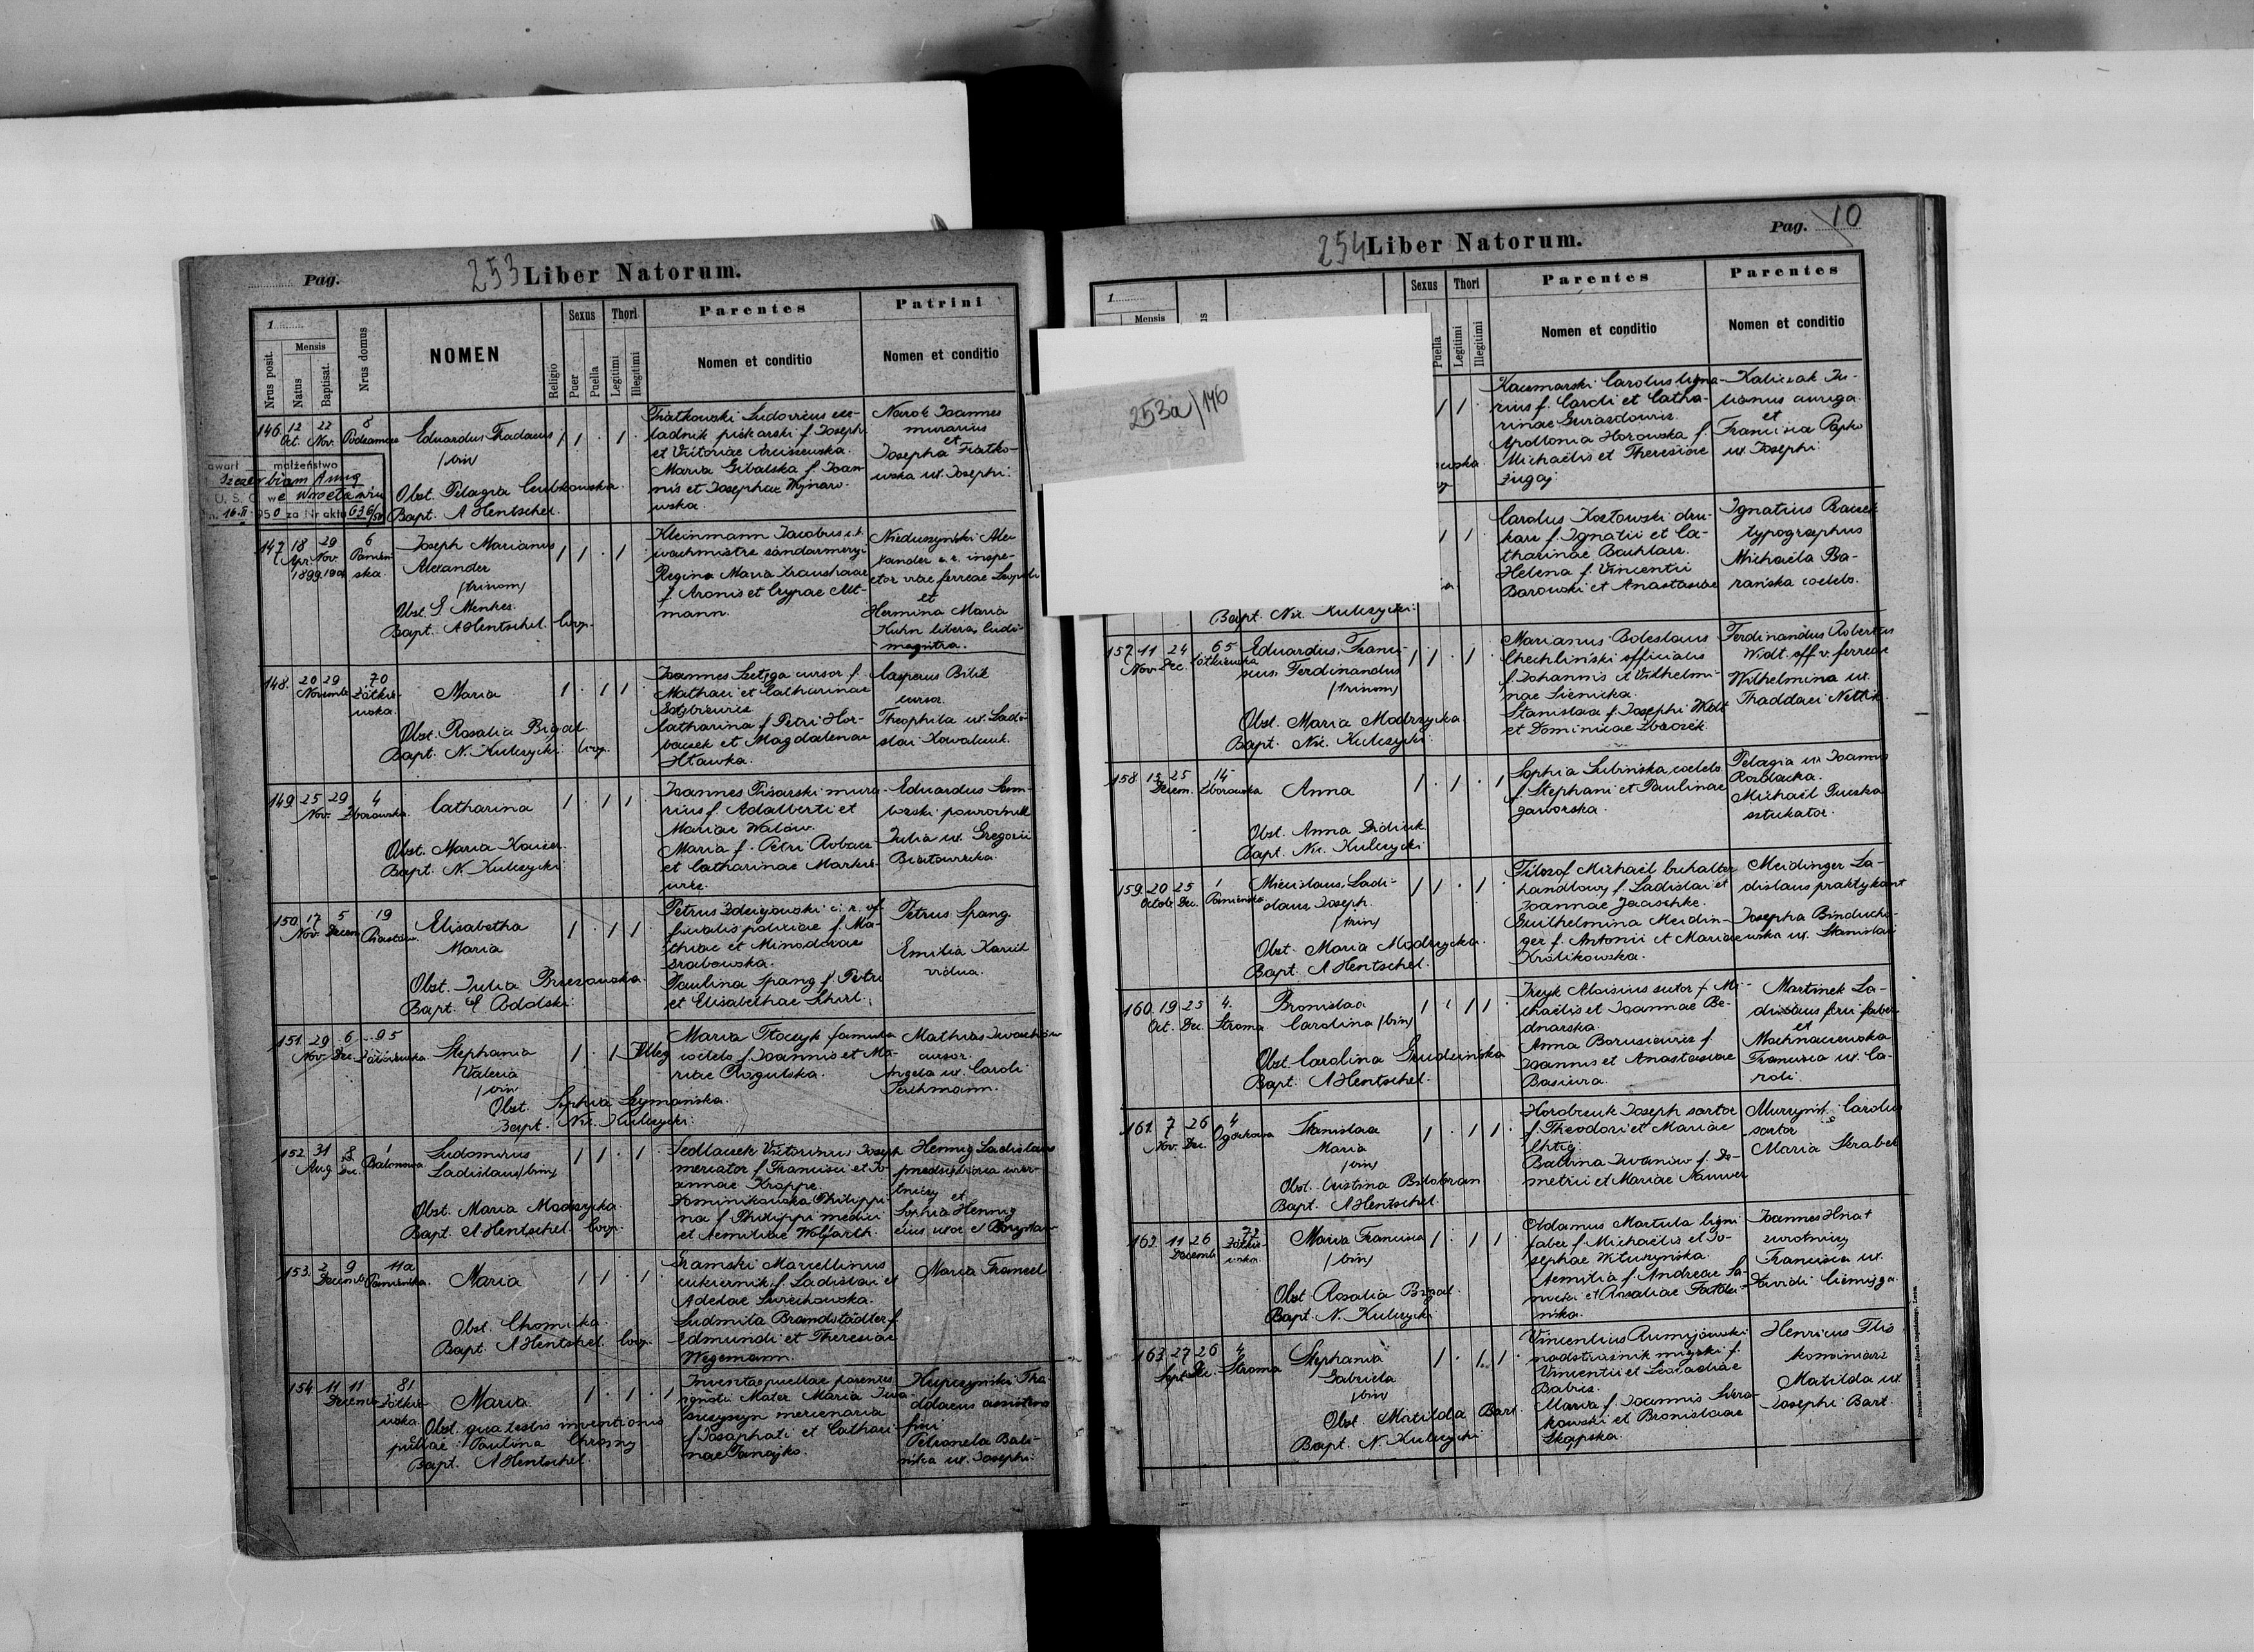 Pag.
253 Liber Natorum.
1
Nrus posit.
Mensis
Natus
Baptisat.
Nrus domus
NOMEN
Religio
Sexus
Puer
Puella
Thori
Legitimi
Illegitimi
Parentes
Nomen et conditio
Patrini
Nomen et conditio
146 12 Oct. 22 Nov. 8 Podzamcze
Eduardus Thadaeus
/bin/
Obst. Pelagia
Bapt. A Hentschel.
małżeństwo
Anną
U. S. C. we Wrocławiu
16.II 1950 za Nr aktu 636/50
Fiatkowski Ludovicus cze-
ladnik piekarski f. Joseph
et Victoriae
Maria Gibalska f. Joan-
nis et Josephae Wynaro-
wska.
Nawok Joannes
murarius
et
Josepha Fiatko-
wska ux. Josephi.
147 18 Apr. 1899 29 Nov. 6 Panień-
ska.
Joseph Marianus
Alexander
/trinom/
Obst. G. Menkes.
Bapt. A Hentschel. Coop.
Kleinmann Jacobus c.k.
wachmistrz żandarmeryi
Regina Maria Kraushaar
f. Aronis et Cypae Alt-
mann.
Nieduszyński Ale-
xander c. r. inspe-
ctor viae ferreae Leopoli
et
Hermina Maria
Kuhn libera ludi-
magistra.
148. 20 29 Novemb. 70 Żółkie-
wska.
Maria
Obst. Rosalia Bigal.
Bapt. N. Kulczycki Coop.
Joannes Szeliga cursor f.
Mathaei et Catharinae
Catharina f. Petri Hor-
baczek et Magdalenae
Hławka.
Casperus Bilik
cursor.
Theophila ux. Ladi-
slai Kowalczuk.
149 25 Nov. 29 4 Zborowska.
Catharina
Obst. Maria
Bapt. N. Kulczycki
Joannes Pisarski mura-
rius f. Adalberti et
Mariae Walów.
Maria f. Petri
et Catharinae Markie-
wicz.
Eduardus Sam-
borski powroźnik
Julia ux. Gregorii
150. 17 Nov. 5 Decem. 19 Piastów.
Elisabetha
Maria
Obst. Julia Brzezowska.
Bapt. E. Adolski.
Petrus c. r. of-
ficialis policiae f. Ma-
thiae et Minodorae
Grabowska.
Paulina Spang f. Petri
et Elisabethae
Petrus Spang.
Emilia Karil
vidua.
151. 29 Nov. 6 Dec. 95 Żółkiewska
Stephania
Valeria
/bin/
Obst. Sophia Szymańska.
Bapt. Nic. Kulczycki.
Illeg
Maria Tkaczyk famula
coelebs f. Joannis et Ma-
riae Rogulska.
Mathias Iwachów
cursor.
Angela ux. Caroli
Teichmann.
152. 31 Aug 8 Dec. 1 Balonowa
Ludomirus
Ladislaus /bin/
Obst. Maria Modrzycka
Bapt. A Hentschel Coop.
Sedlaczek Victorinus Joseph
mercator f. Francisci et Jo-
annae Kroppe.
Dominikowska Philippi-
na f. Philippi medici
et Aemiliae Wolfarth.
Hennig Ladislaus
et
Sophia Hennig
eius uxor e Borysław
153. 2 9 Decemb. 11a Panieńska.
Maria
Obst. Chomicka.
Bapt. A Hentschel. Coop.
Gramski Marcellinus
cukiernik f. Ladislai et
Adelae
Ludmila Brandstädter f.
Edmundi et Theresiae
Wegemann.
Maria Francel
154. 11 11 Decemb. 81 Żółkie-
wska.
Maria
Obst. qua testis inventionis
puellae: Paulina Chromy
Bapt. A Hentschel.
Inventae puellae parentes
ignoti. Mater Maria Iwa-
szczyszyn mercenaria
f. Josaphati et Cathari-
nae Panajko.
Kupczyński Tha-
ddaeus
Petronela Bali-
ńska ux. Josephi.
Pag. 10
254 Liber Natorum.
1
Mensis
Sexus
Puella
Thori
Legitimi
Illegitimi
Parentes
Nomen et conditio
Parentes
Nomen et conditio
253a/146
Kaczmarski Carolus ligna-
rius f. Caroli et Catha-
rinae
Apollonia Horowska f.
Michaelis et Theresiae
Żugaj.
Kaliczak Ju-
lianus auriga
et
Francisca Papko
ux. Josephi.
Carolus Kozłowski dru-
karz f. Ignatii et Ca-
tharinae
Helena f. Vincentii
Borowski et Anastasiae
Ignatius
typographus
Michaela Ba-
rańska coelebs.
Bapt. Nic. Kulczycki.
157. 11 Nov. 24 Dec. 65 Żółkiewska
Eduardus, Franci-
scus, Ferdinandus
/trinom/
Obst. Maria Modrzycka
Bapt. Nic. Kulczycki.
Marianus Boleslaus
Chechliński officialis
f. Johannis et Wilhelmi-
nae Sienicka.
Stanislaa f. Josephi Widt
et Dominicae
Ferdinandus Robertus
Widt off. v. ferreae
Wilhelmina ux.
Thaddaei Nettik.
158. 15 25 Decem. 14 Zborowska
Anna
Obst. Anna Didiuk
Bapt. Nic. Kulczycki
Sophia Lubińska, coelebs
f. Stephani et Paulinae
Jaworska.
Pelagia ux. Joannis
Michaël
sztukator.
159. 20 Octob. 25 Dec. 1 Panieńska
Miecislaus, Ladi-
slaus Joseph.
/trin/
Obst. Maria Modrzycka.
Bapt. A Hentschel.
Filozof Michael buhalter
handlowy f. Ladislai et
Joannae Jaaschke.
Guilhelmina Meidin-
ger f. Antonii et Mariae
Królikowska.
Meidinger La-
dislaus praktykant
Josepha Binducho-
wska ux. Stanislai
160. 19 Oct. 25 Dec. 4. Stroma
Bronislaa
Carolina /bin/
Obst. Carolina Grudzińska
Bapt. A Hentschel.
Aloisius sutor f. Mi-
chaëlis et Joannae Be-
dnarska.
Anna Borusiewicz f.
Joannis et Anastasiae
Martinek La-
dislaus ferri faber
et
Machnaczewska
Francisca ux. Ca-
roli
161. 7 Nov. 26 Dec. 4 Ogórkowa
Stanislaa
Maria
/bin/
Obst. Cristina
Bapt. A Hentschel.
Horobczuk Joseph sartor
f. Theodori et Mariae
Balbina Iwaniów f. De-
metrii et Mariae
Carolus
sartor
Maria Skrabek
162. 11 26 Decemb. 72 Żółkie-
wska.
Maria Francisca
/bin/
Obst. Rosalia Bigal.
Bapt. N. Kulczycki
Adamus Martula ligni
faber f. Michaelis et Jo-
sephae
Aemilia f. Andreae Sa-
nocki et Rosaliae
Joannes Hnat
zwrotniczy
Francisca ux.
Davidi
163. 27 Sept. 26 Dec. 4 Stroma
Stephania
Gabriela
/bin/
Obst. Matilda Bart.
Bapt. N. Kulczycki
Vincentius
nadstrażnik miejski f.
Vincentii et Leocadiae
Babicz.
Maria f. Joannis Skra-
kowski et Bronislaae
Skąpska.
Henricus Flis
kominiarz
Matilda ux.
Josephi Bart.